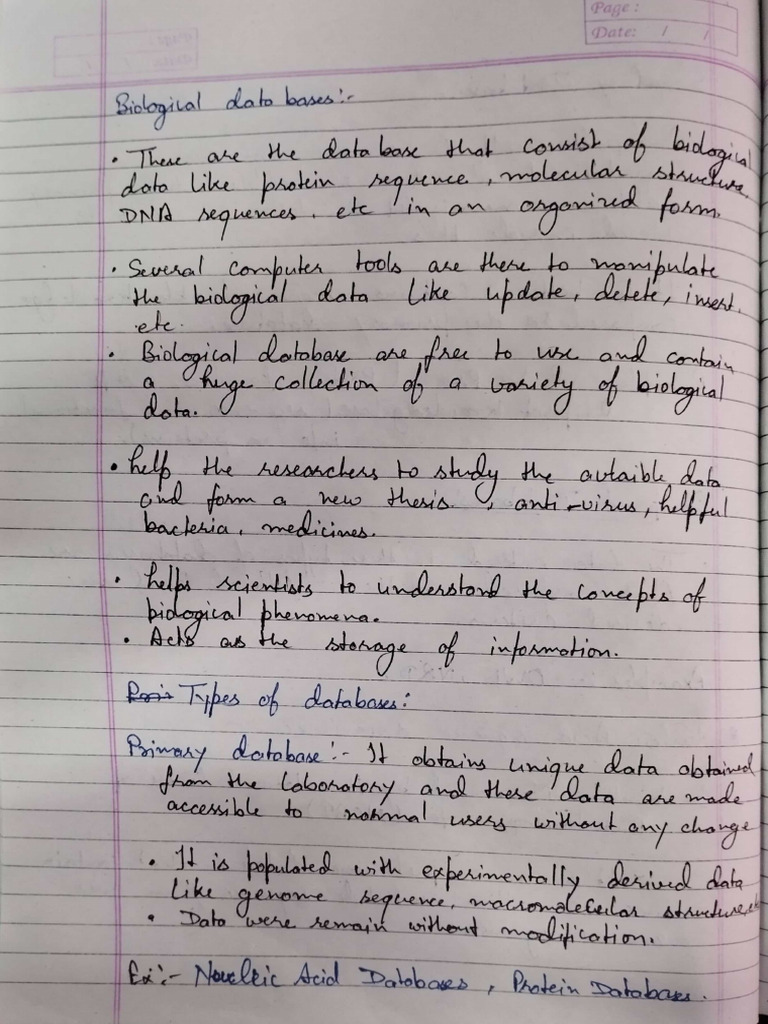 Page :
Date: / /
Biological data bases:-
• These are the database that consist of biological
data like protein sequence, molecular structure,
DNA sequences, etc in an organized form.
• Several computer tools are there to manipulate
the biological data like update, delete, insert,
etc.
• Biological database are free to use and contain
a huge collection of a variety of biological
data.
• help the researchers to study the avtaible data
and form a new thesis, anti-virus, helpful
bacteria, medicines.
• helps scientists to understand the concepts of
biological phenomena.
• Acts as the storage of information.
Types of databases:
Primary database:- It obtains unique data obtained
from the laboratory and these data are made
accessible to normal users without any change
• It is populated with experimentally derived data
like genome sequence, macromolecular structure, etc
• Data were remain without modification.
Ex:- Nucleic Acid Databases, Protein Databases.